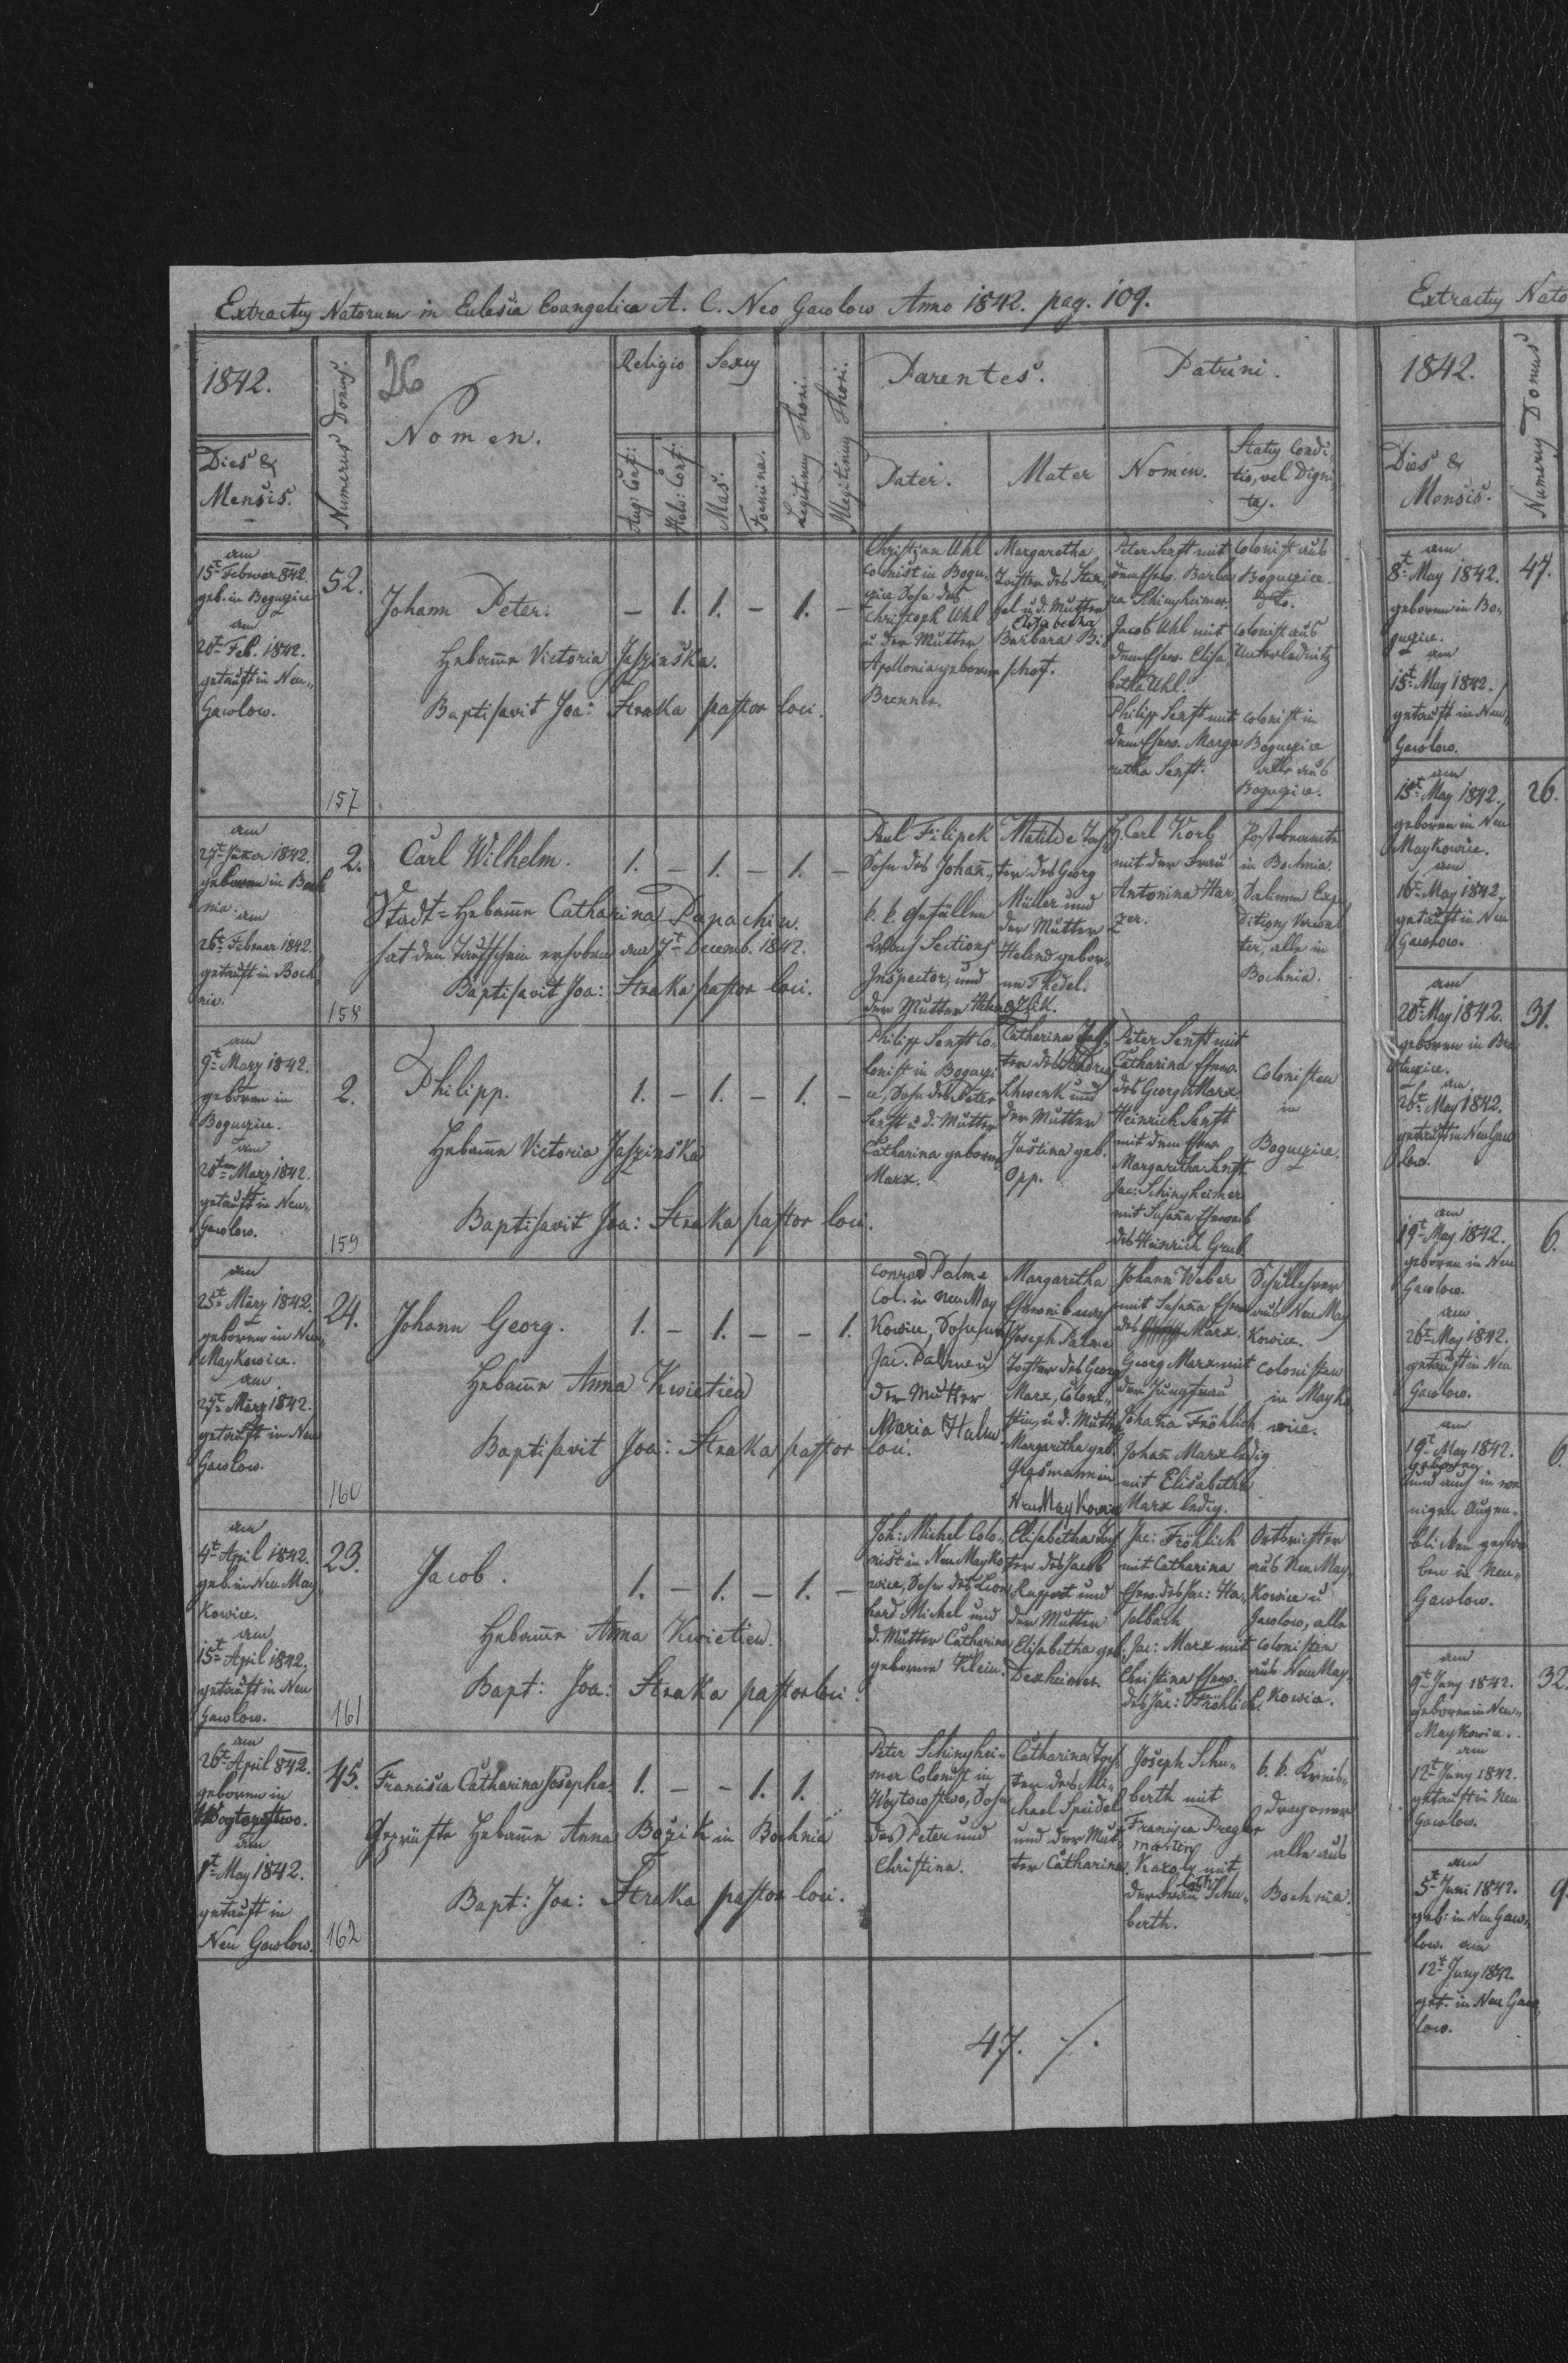 Extractus Natorum in Eclesia Evangelica A. C. Neo Gawlow Anno 1842. pag. 109.
1842.
Dies &
Mensis.
Numerus Domus.
26
Nomen.
Religio
Aug: Conf:
Helv: Conf:
Sexus
Mas.
Foemina.
Legitimus Thori.
Illegitimus Thori.
Parentes.
Pater.
Mater
Patrini.
Nomen.
Status Condi-
tio, vel Digni-
tas.
am
15t Februar 842.
geb. in Bogucice
am
20t Feb. 1842.
getauft in Neu-
Gawlow.
52.
157
Johann Peter.
Hebamme Victoria Jaszinska.
Baptisavit Joa: Straka pastor loci.
– 1. 1. – 1. –
Christian Uhl
Colonist in Bogu-
cice Sohn des
Christoph Uhl
u der Mutter
Apollonia geborene
Brenner.
Margaretha
Tochter des
u. d. Mutter
Elisabetha
Barbara Bi-
schof.
Peter Senft mit
dem Ehew. Barba-
ra Schingheimer.
Jacob Uhl mit
dem Ehew. Elisa-
betha Uhl.
Philipp Senft mit
dem Ehew. Marga
retha Senft.
Colonist aus
Bogucice.
dto.
Colonist aus
Unterladnitz
Colonist in
Bogucice
alle aus
Bogucice.
am
27t Jäner 1842.
geboren in Boch
nia.
am
26t Februar 1842.
getauft in Boch
nia.
2.
158
Carl Wilhelm.
Stadt-Hebamme Catharina Papachin.
hat den Taufschein erhoben am 7t Decemb. 1842.
Baptisavit Joa: Straka pastor loci.
1. – 1. – 1. –
Paul Filipek
Sohn des Johan,
k. k. Gefällen
Wach Sections
Inspector, und
der Mutter Helena
Matilde Toch
ter des Georg
Müller und
der Mutter
Helena gebor-
ne Thedel.
H. Carl Korb
mit der Frau
Antonina Har-
zer.
Postbeamte
in Bochnia.
Salinen Exp
editions Verwal
ter, alle in
Bochnia.
am
9t März 1842.
geboren in
Bogucice.
am
20ten März 1842.
getauft in Neu-
Gawlow.
2.
159
Philipp.
Hebamme Victoria Jaszinska
Baptisavit Joa: Straka pastor loci.
1. – 1. – 1. –
Philipp Senft Co-
lonist in Boguci
ce, Sohn des Peter
Senft u d. Mutter
Catharina geborene
Marx.
Catharina Toch-
ter des Andreas
Schwenk und
der Mutter
Justina geb.
Opp.
Peter Senft mit
Catharina Ehew.
des Georg Marx.
Heinrich Senft
mit dem Ehew.
Margaretha Senft
Jac: Schingheimer
mit Susana Eheweib
des Heinrich Grub.
Colonisten
in
Bogucice.
am
25t März 1842.
geboren in Neu-
Maykowice.
am
27t März 1842.
getauft in Neu
Gawlow.
24.
160
Johann Georg.
Hebamme Anna Kwietien
Baptisavit Joa: Straka pastor loci.
1. – 1. – – 1.
Conrad Palme
Col. in Neu May
kowice, Sohn des
Jac. Palme u
der Mutter
Maria Hahn
Margaretha
Eheweib nach
Joseph Palme
Tochter des Georg
Marx, Coloni-
sten, u. d. Mutter
Margaretha geb.
Grosmann in
Neu Maykowice
Johann Weber
mit Susana Ehew
des Marx.
Georg Marx mit
der Jungfrau
Johana Fröhlich
Johan Marx ledig
mit Elisabetha
Marx ledig.
Schullehrer
aus Neu May
kowice.
Colonisten
in Mayko
wice.
am
4t April 1842.
geb. in Neu May
kowice.
am
15t April 1842.
getauft in Neu
Gawlow.
23.
161
Jacob.
Hebamme Anna Kwietien.
Bapt: Joa: Straka pastor loci.
1. – 1. – 1. –
Joh: Michel Colo-
nist in Neu Mayko
wice, Sohn des Leon
hard Michel und
d. Mutter Catharina
geborene Klein.
Elisabetha Toch
ter des Jacob
Ruppert und
der Mutter
Elisabetha geb.
Dexheimer.
Jac: Fröhlich
mit Catharina
Ehew. des Jac: Ha-
selbach
Jac: Marx mit
Christina Ehew.
des Jac: Fröhlich.
Ortsrichter
aus Neu May
kowice u
Gawlow, alle
Colonisten
aus Neu May
kowice.
am
26t April 842.
geboren in
Woytowstwo.
am
1t May 1842.
getauft in
Neu Gawlow.
45.
162
Francisca Catharina Josepha.
Geprüfte Hebamme Anna Bazik in Bochnia
Bapt: Joa: Straka pastor loci.
1. – – 1. 1.
Peter Schinghei-
mer Colonist in
Woytowstwo, Sohn
des Peter und
Christina.
Catharina Toch-
ter des Mi-
chael Speidel
und der Mut
ter Catharina.
Joseph Schu-
berth mit
Francisca Pregler
Martin
Karoly mit
der Frau Schu-
berth.
k. k. Kreis-
dragoner
alle aus
Bochnia.
47. ./.
Extractus Nato
1842.
Dies &
Mensis.
Numerus Domus
am
8t May 1842.
geboren in Bo-
gucice.
am
15t May 1842.
getauft in Neu-
Gawlow.
47.
am
15t May 1842.
geboren in Neu
Maykowice.
am
16t May 1842.
getauft in Neu
Gawlow.
26.
am
20t May 1842.
geboren in
am
26t May 1842.
getauft in Neu Gaw
low.
31.
am
19t May 1842.
geboren in Neu
Gawlow.
am
26t May 1842.
getauft in Neu
Gawlow.
6.
am
19t May 1842.
geboren
und auch in we
nigen Augen-
blicken gestor
ben in Neu-
Gawlow.
6.
am
9t Juny 1842.
geboren in Neu-
Maykowice.
am
12t Juny 1842.
getauft in Neu
Gawlow.
32.
am
5t Juni 1842.
geb: in Neu Gaw-
low. am
12t Juny 1842.
get. in Neu Gaw
low.
9